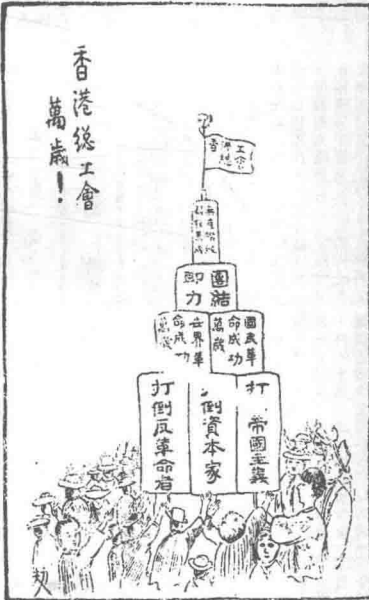 香港總工會
萬歲！
無產階級
團結
即力
國民革
命成功
萬歲
世界革
命成功
萬歲
打 帝國主義
倒資本家
打倒反革命者